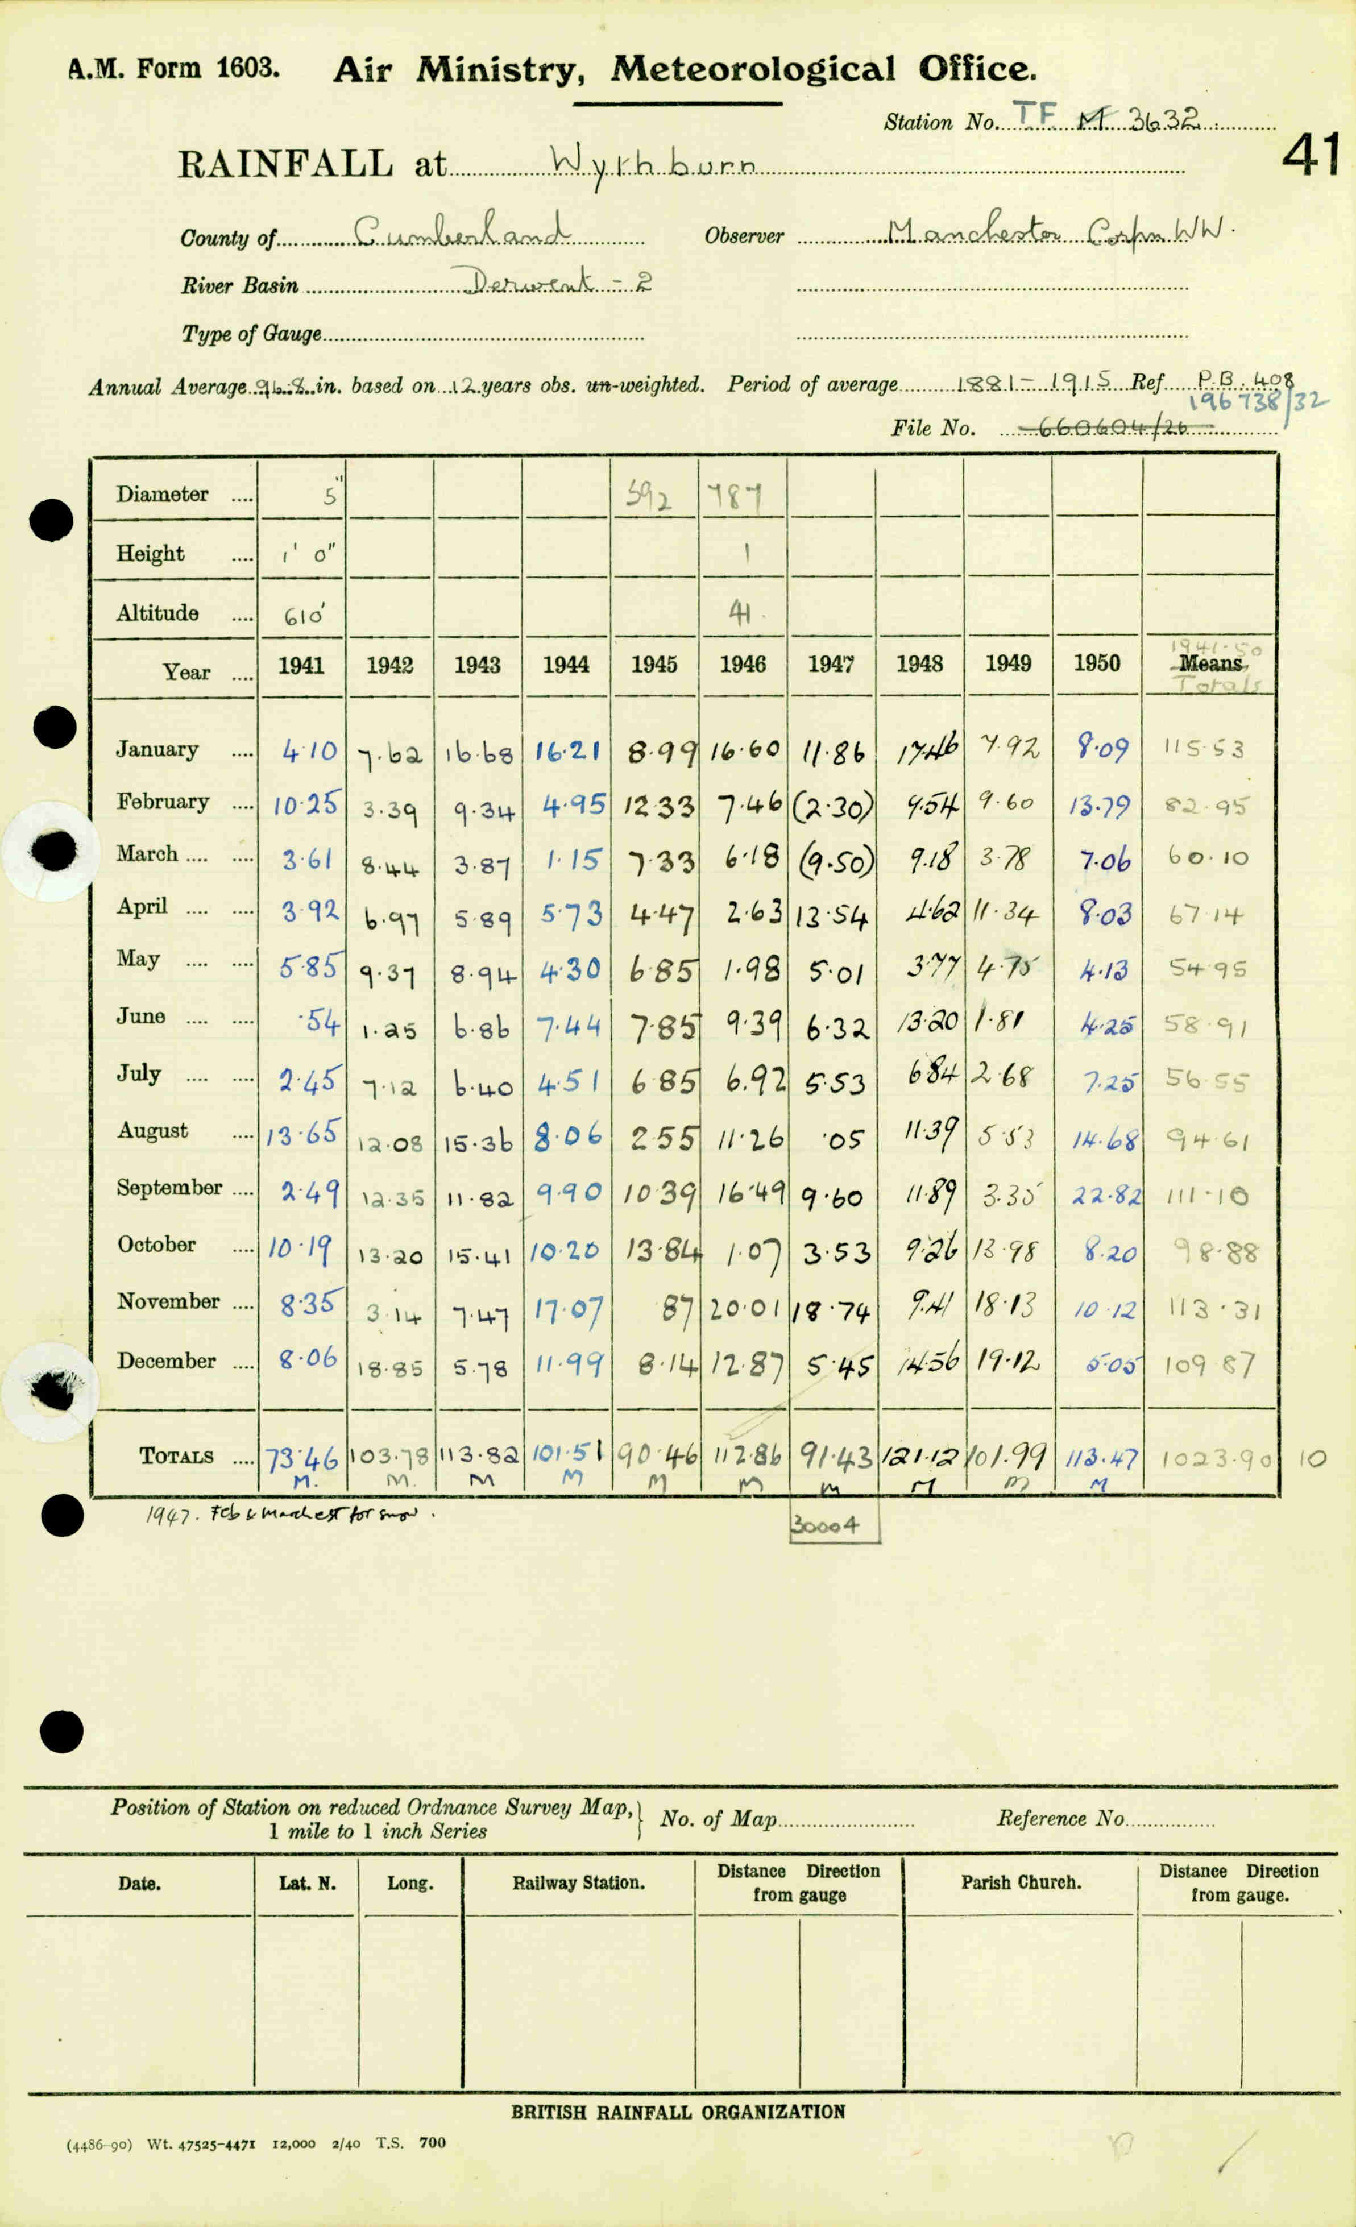 A.M. Form 1603. Air Ministry, Meteorological Office.
Station No. TF M 3632
41
RAINFALL at Wythburn
County of Cumberland Observer Manchester Corpn WW.
River Basin Derwent - 2
Type of Gauge
Annual Average 96.8 in. based on 12 years obs. un-weighted. Period of average 1881-1915 Ref P.B. 408
196738/32
File No. 660604/26
Diameter .... 5" 592 787
Height .... 1' 0" 1
Altitude .... 610' 41.
1941-50
Year .... 1941 1942 1943 1944 1945 1946 1947 1948 1949 1950 Means
Totals
January .... 4.10 7.62 16.68 16.21 8.99 16.60 11.86 17.46 7.92 8.09 115.53
February .... 10.25 3.39 9.34 4.95 12.33 7.46 (2.30) 9.54 9.60 13.79 82.95
March .... .... 3.61 8.44 3.87 1.15 7.33 6.18 (9.50) 9.18 3.78 7.06 60.10
April .... .... 3.92 6.97 5.89 5.73 4.47 2.63 13.54 4.62 11.34 8.03 67.14
May .... .... 5.85 9.37 8.94 4.30 6.85 1.98 5.01 3.77 4.75 4.13 54.95
June .... .... .54 1.25 6.86 7.44 7.85 9.39 6.32 13.20 1.81 4.25 58.91
July .... .... 2.45 7.12 6.40 4.51 6.85 6.92 5.53 6.84 2.68 7.25 56.55
August .... 13.65 12.08 15.36 8.06 2.55 11.26 .05 11.39 5.53 14.68 94.61
September .... 2.49 12.35 11.82 9.90 10.39 16.49 9.60 11.89 3.35 22.82 111.10
October .... 10.19 13.20 15.41 10.20 13.84 1.07 3.53 9.26 13.98 8.20 98.88
November .... 8.35 3.14 7.47 17.07 87 20.01 18.74 9.41 18.13 10.12 113.31
December .... 8.06 18.85 5.78 11.99 8.14 12.87 5.45 14.56 19.12 5.05 109.87
TOTALS .... 73.46 103.78 113.82 101.51 90.46 112.86 91.43 121.12 101.99 113.47 1023.90 10
M. M. M M M M M M M M
1947. Feb & March est for snow.
30004
Position of Station on reduced Ordnance Survey Map, } No. of Map Reference No.
1 mile to 1 inch Series
Date. Lat. N. Long. Railway Station. Distance Direction from gauge Parish Church. Distance Direction from gauge.
BRITISH RAINFALL ORGANIZATION
(4486-90) Wt. 47525-4471 12,000 2/40 T.S. 700